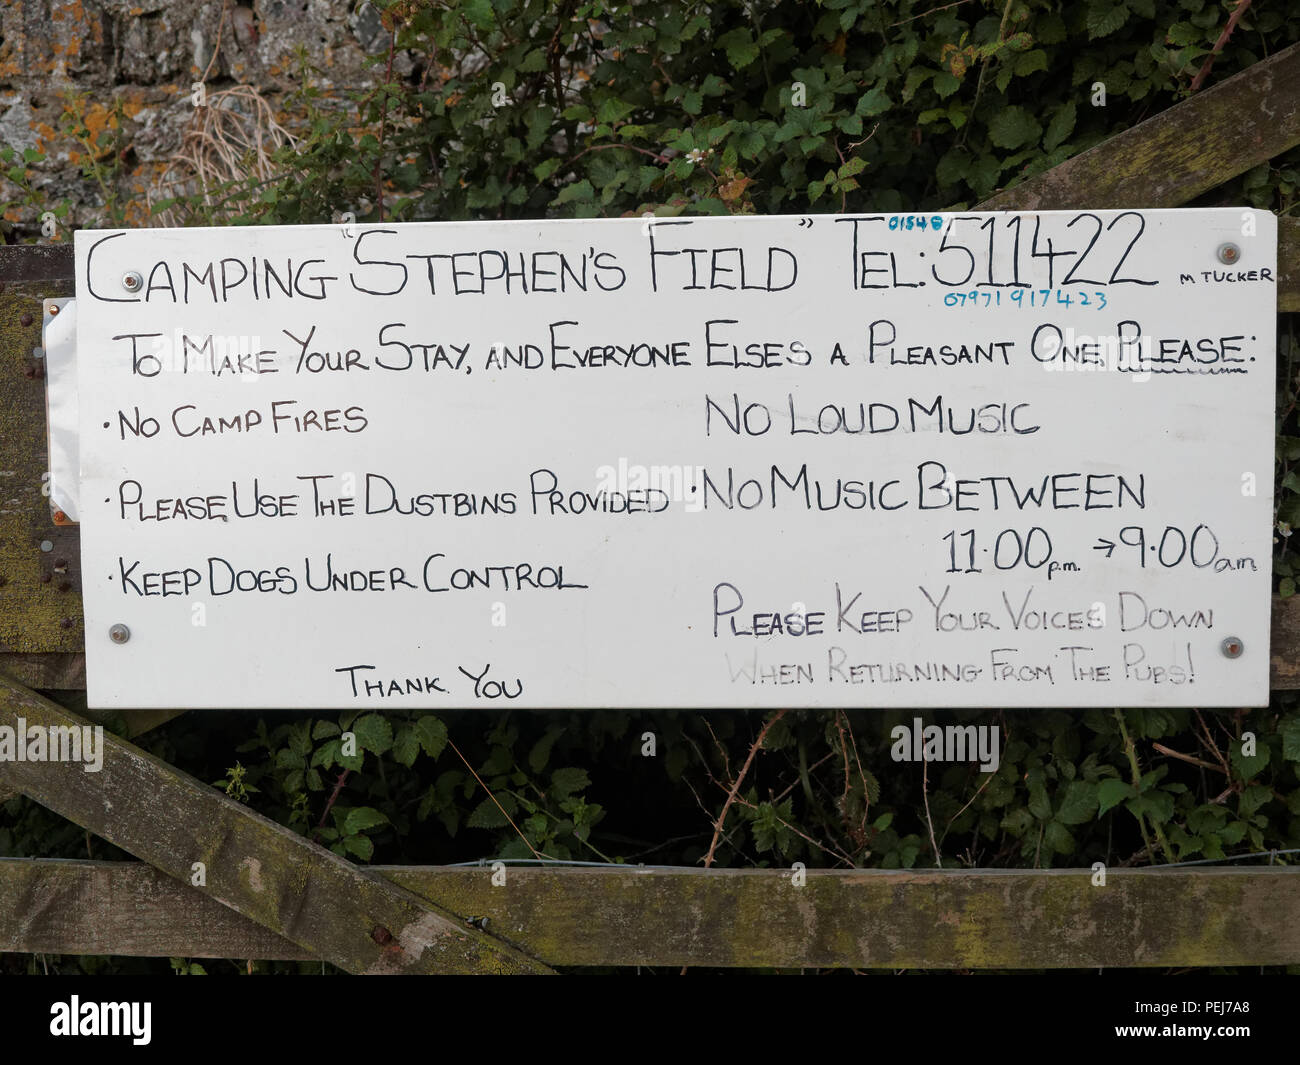 CAMPING "STEPHEN'S FIELD" TEL: 01548 511422 M TUCKER
07971 917423
TO MAKE YOUR STAY, AND EVERYONE ELSES A PLEASANT ONE, PLEASE:
· NO CAMP FIRES
· PLEASE USE THE DUSTBINS PROVIDED
· KEEP DOGS UNDER CONTROL
THANK YOU
NO LOUD MUSIC
· NO MUSIC BETWEEN
11.00 p.m. → 9.00 am
PLEASE KEEP YOUR VOICES DOWN
WHEN RETURNING FROM THE PUBS!
alamy
Image ID: PEJ7A8
www.alamy.com